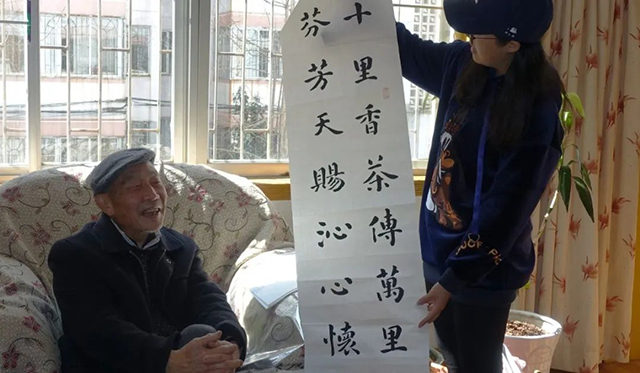 十里香茶傳萬里
芬芳天賜沁心懷